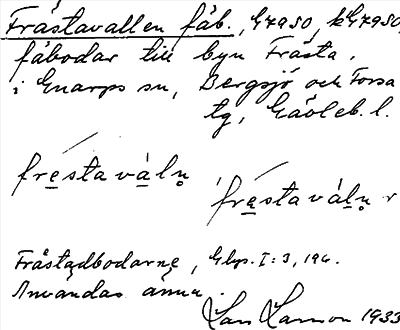 Fråstavallen fäb., G7950, kG7950,
fäbodar till byn Frästa,
i Gnarps sn, Bergsjö och Forsa
tg, Gävleb. l.
frestavaln
frestavaln
Fråstadbodarne, Glps. I:3, 194.
Användas ännu.
Lars 1933